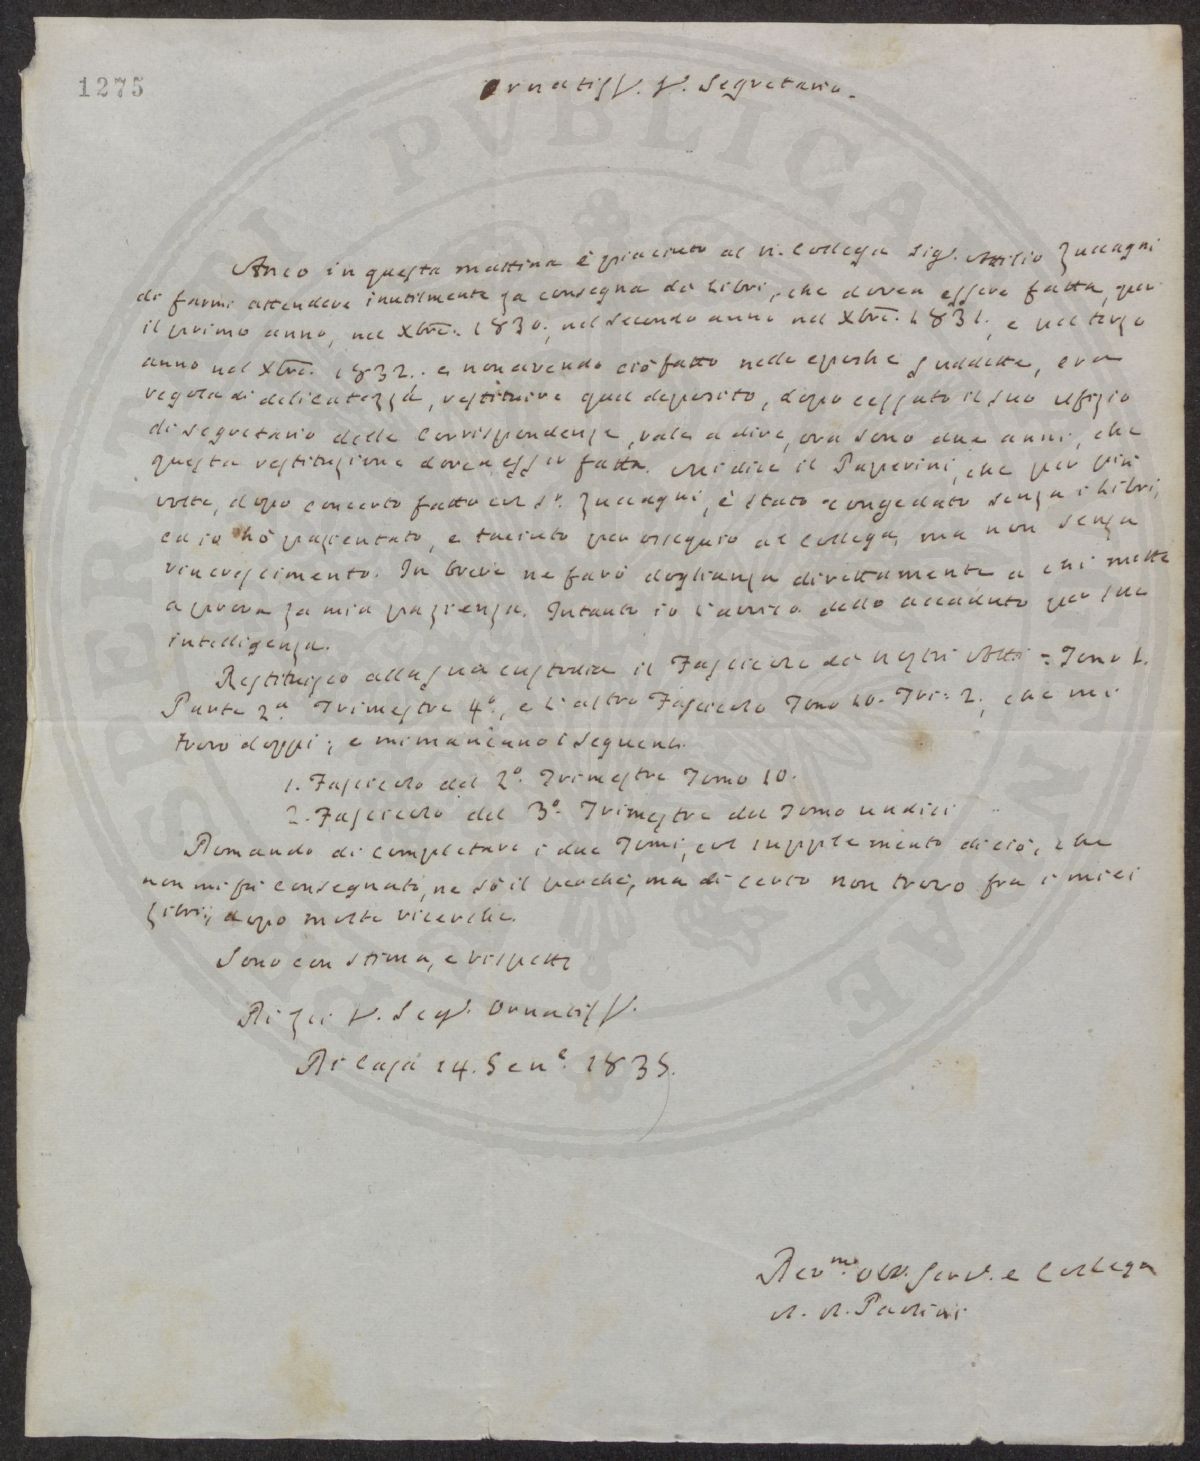 1275
Ornatiss. S. Segretario.
Anco in questa mattina è piaciuto al N. Collega Sig. Attilio Zuccagni
di farmi attendere inutilmente la consegna de Libri, che dovea essere fatta, per
il primo anno, nel Xbre. 1830; nel secondo anno nel Xbre. 1831; e nel terzo
anno nel Xbre. 1832. e non avendo ciò fatto nelle epoche suddette, era
regola di delicatezza, restituire quel deposito, dopo cessato il suo Ufizio
di segretario delle Corrispondenze, vale a dire, ora sono due anni, che
questa restituzione dovea esser fatta. Mi dice il Paperini, che per più
volte, dopo concerto fatto col Sr. Zuccagni, è stato congedato senza i Libri,
ed io hò pazientato, e taciuto per ossequio al Collega, ma non senza
rincrescimento. In breve ne farò doglianza direttamente a chi mette
a prova la mia pazienza. Intanto io l'avviso dello accaduto per sua
intelligenza.
Restituisco alla sua custodia il Fascicolo de nostri Atti = Tomo 1.
Parte 2a. Trimestre 4o., e l'altro Fascicolo Tomo 10. Tri: 2., che mi
trovo doppi; e mi mancano i seguenti.
1. Fascicolo del 2o. Trimestre Tomo 10.
2. Fascicolo del 3o. Trimestre del Tomo undici
Domando di completare i due Tomi, col supplemento di ciò, che
non mi fù consegnato, ne sò il perchè, ma di certo non trovo fra i miei
Libri, dopo molte ricerche.
Sono con stima, e rispetto
Di Lei S. Seg. Ornatiss.
Di Casa 14. Gene. 1835.
Devmo. Obb. Serv. e Collega
A. A. Paolini
PVBLICAE